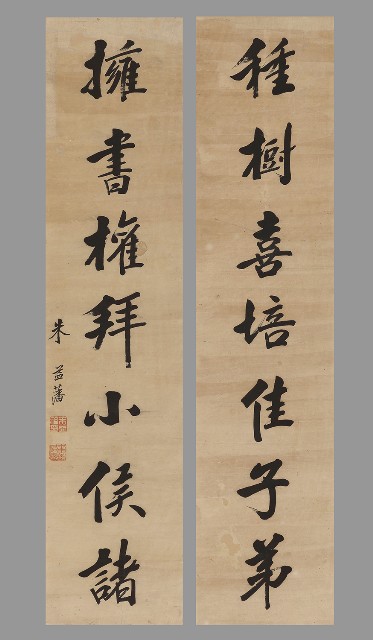 種樹喜培佳子弟
擁書權拜小侯諸
朱益藩